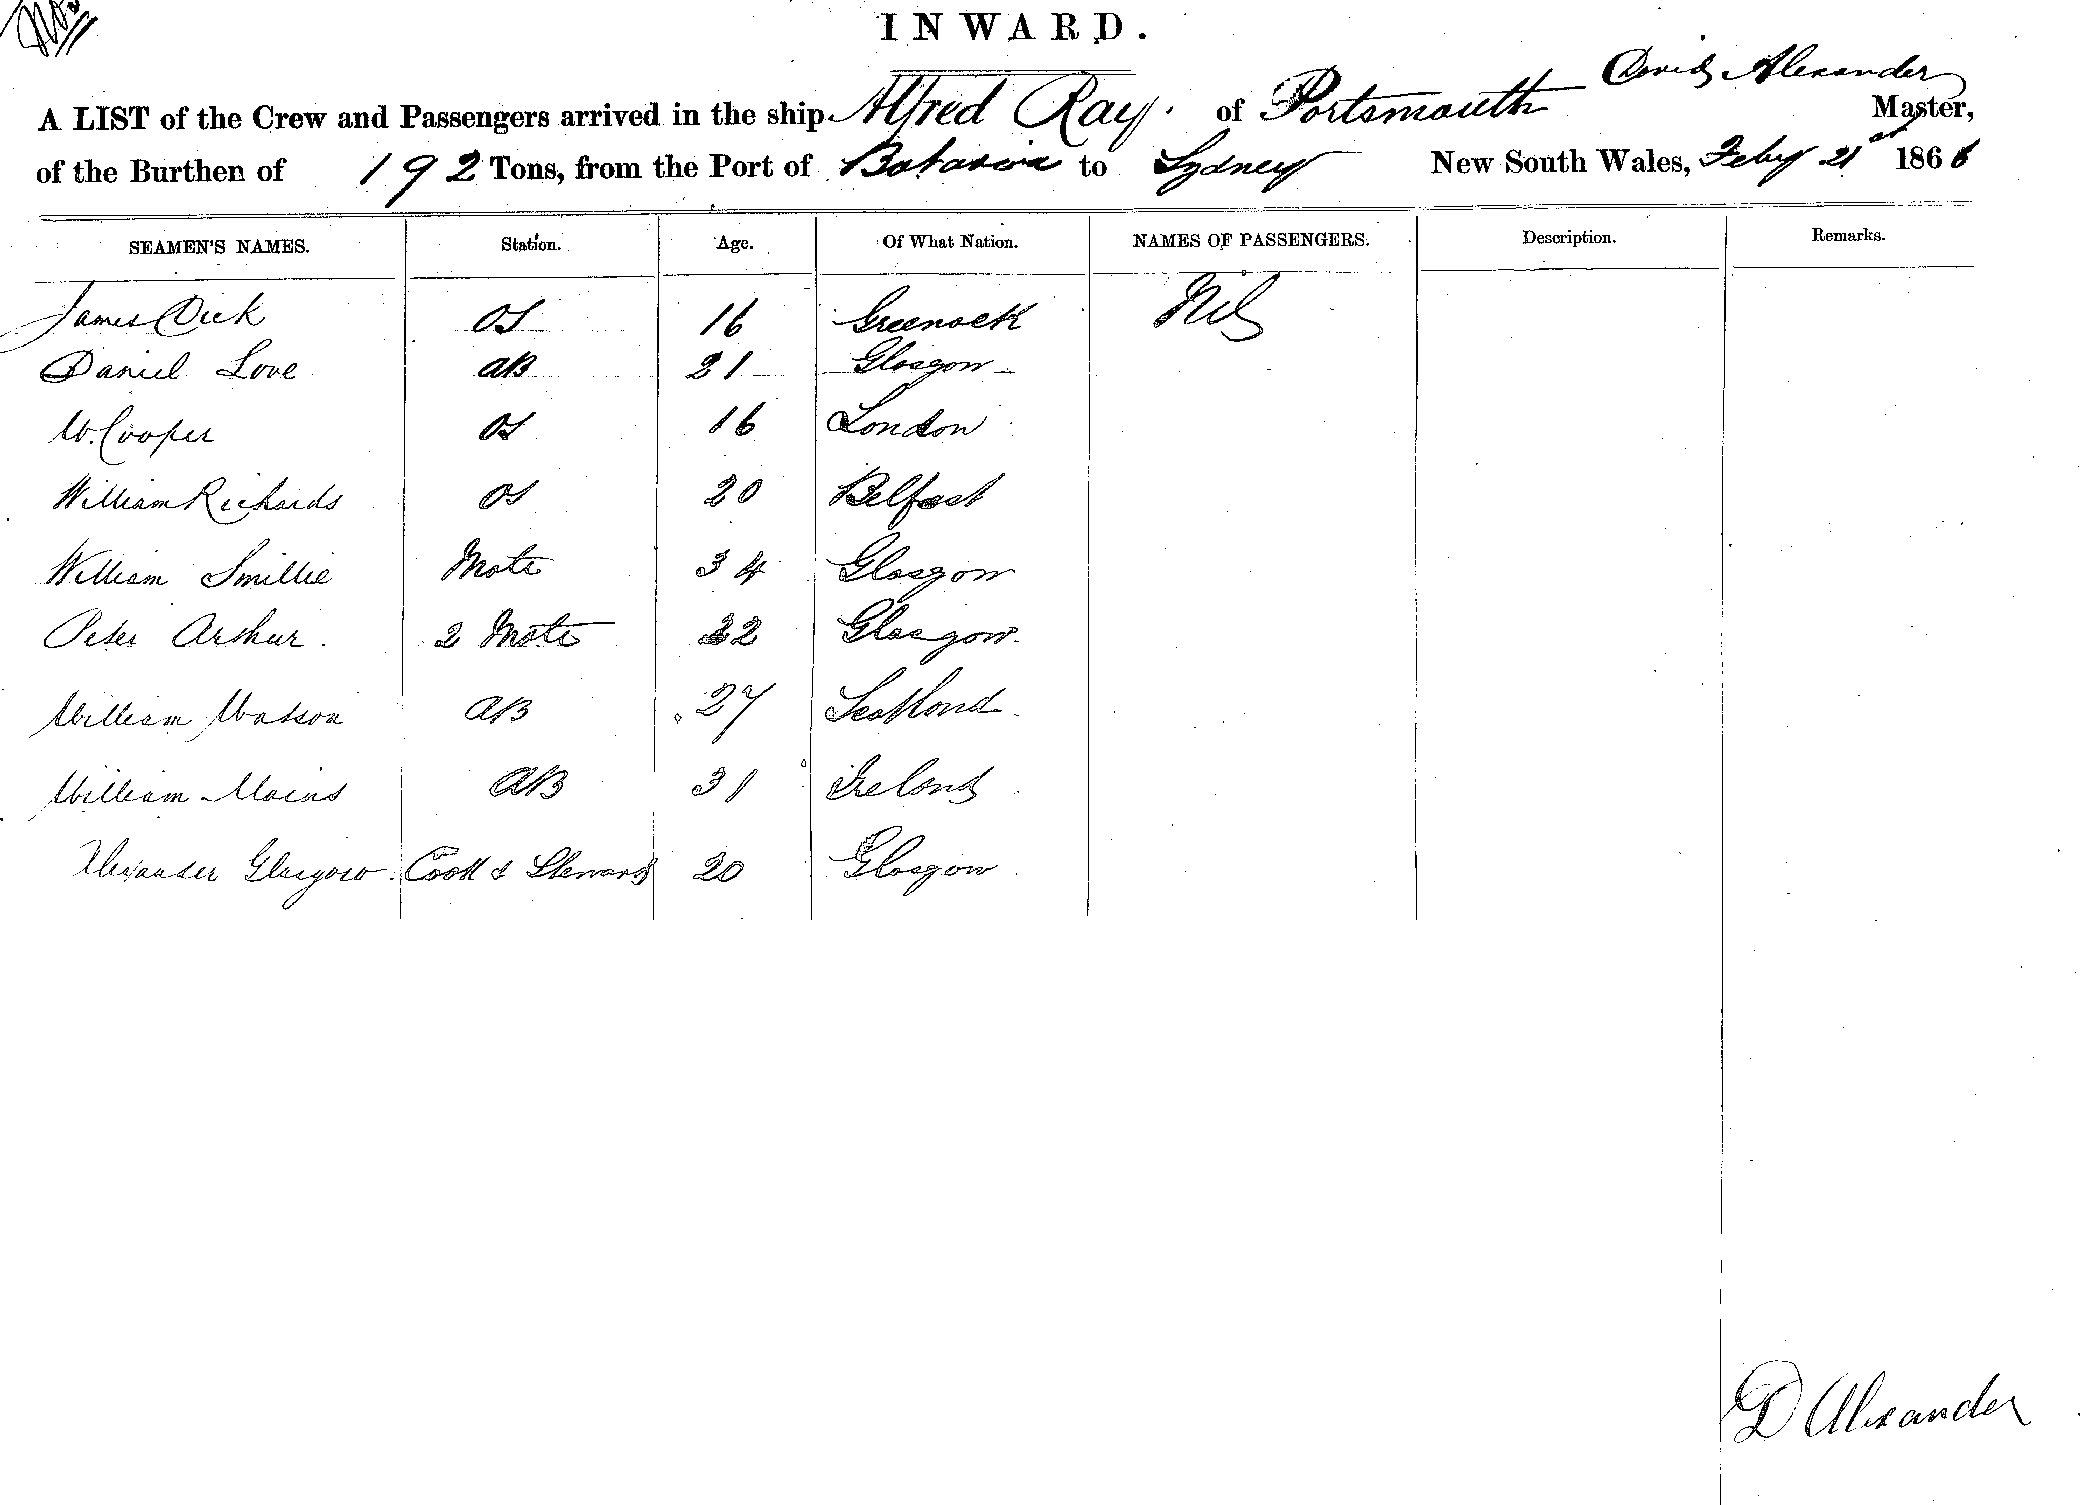 INWARD.
David Alexander
A LIST of the Crew and Passengers arrived in the ship Alfred Ray. of Portsmouth Master,
of the Burthen of 192 Tons, from the Port of Batavia to Sydney New South Wales, Feby 21st 1866
SEAMEN'S NAMES. Station. Age. Of What Nation. NAMES OF PASSENGERS. Description. Remarks.
James Dick OS 16 Greenock Nil
Daniel Love AB 21 Glasgow
W. Cooper OS 16 London
William Richards OS 20 Belfast
William Smillie Mate 34 Glasgow
Peter Arthur. 2 Mate 22 Glasgow.
William Watson AB 27 Scotland
William Mains AB 31 Ireland
Alexander Glasgow Cook & Steward 20 Glasgow
D Alexander